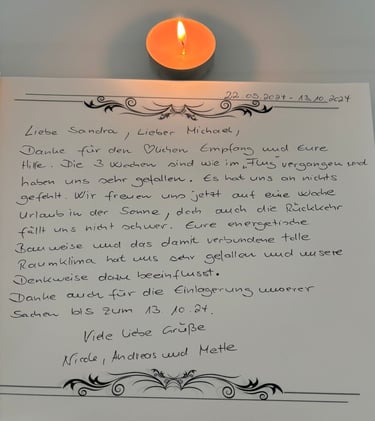 22.09.2024 - 13.10.2024
Liebe Sandra, Lieber Michael,
Danke für den ♡lichen Empfang und Eure
Hilfe. Die 3 Wochen sind wie im "Flug" vergangen und
haben uns sehr gefallen. Es hat uns an nichts
gefehlt. Wir freuen uns jetzt auf eine Woche
Urlaub in der Sonne, doch auch die Rückkehr
fällt uns nicht schwer. Eure energetische
Bauweise und das damit verbundene tolle
Raumklima hat uns sehr gefallen und unsere
Denkweise dazu beeinflusst.
Danke auch für die Einlagerung unserer
Sachen bis zum 13.10.24.
Viele liebe Grüße
Nicole, Andreas und Mette